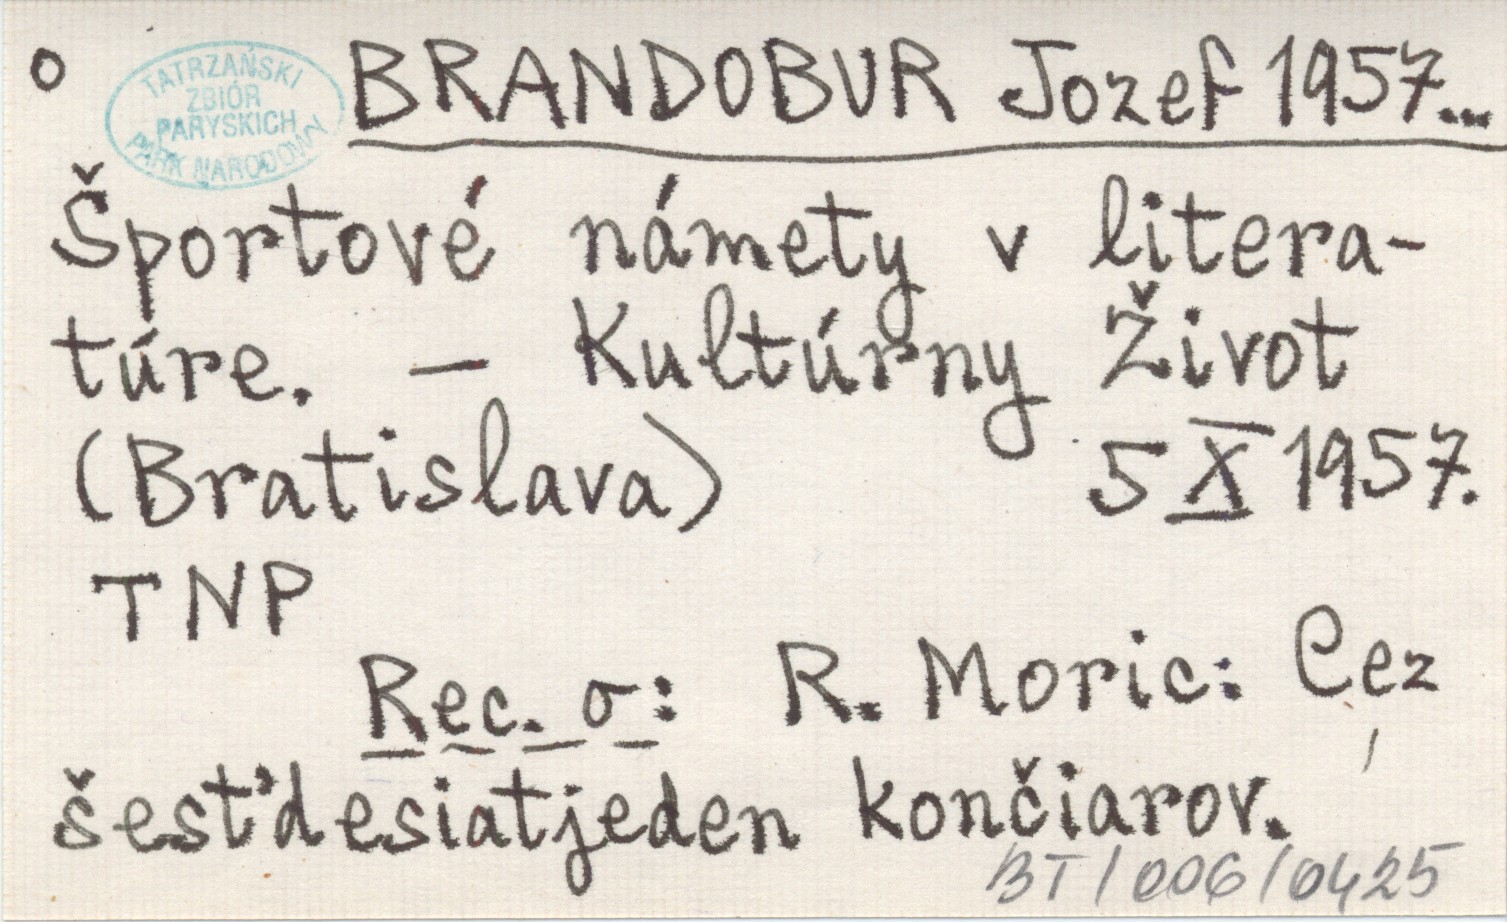 o BRANDOBUR Jozef 1957...
TATRZAŃSKI
ZBIÓR
PARYSKICH
PARK NARODOWY
Športové námety v litera-
túre. – Kultúrny Život
(Bratislava) 5 X 1957.
TNP
Rec. o: R. Moric: Cez
šesťdesiatjeden končiarov.
BT/006/0425